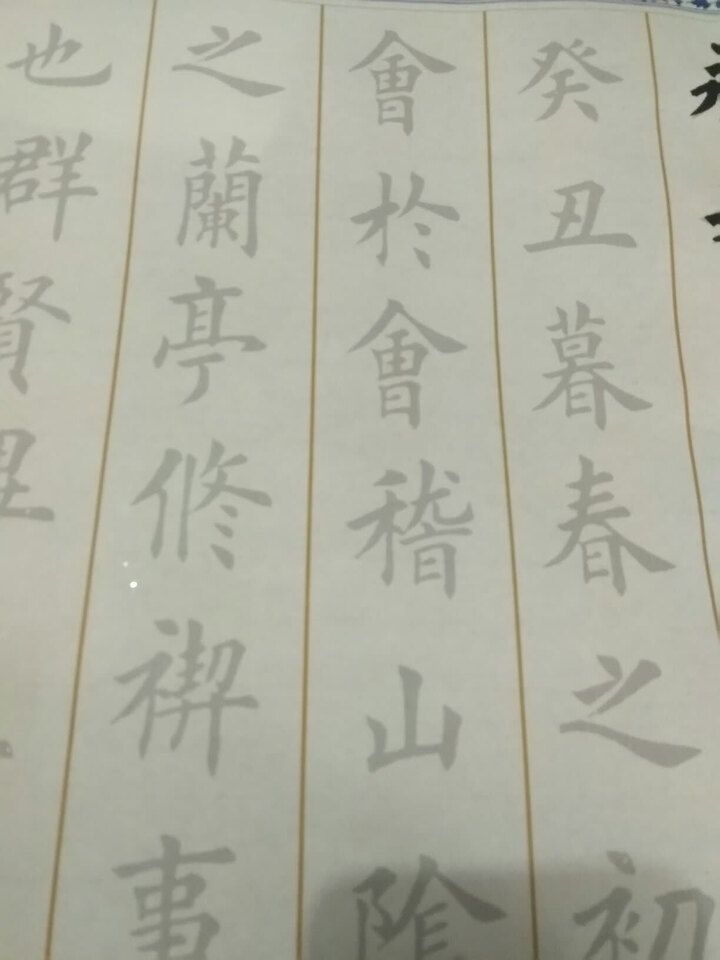 癸丑暮春之初
會於會稽山陰
之蘭亭修禊事
也群賢畢